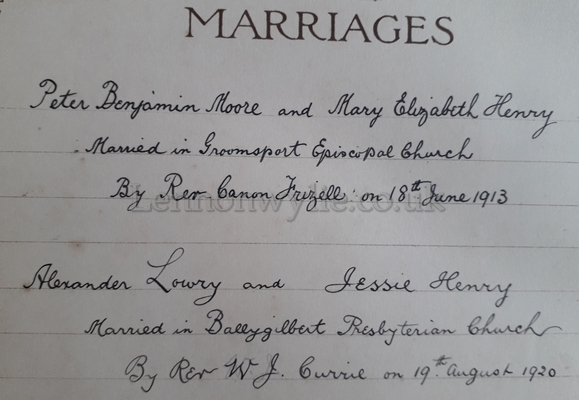 MARRIAGES
Peter Benjamin Moore and Mary Elizabeth Henry
Married in Groomsport Episcopal Church
By Rev Canon Frizell: on 18th June 1913
Lennonwylie.co.uk
Alexander Lowry and Jessie Henry
Married in Ballygilbert Presbyterian Church
By Rev W J. Currie on 19th August 1920